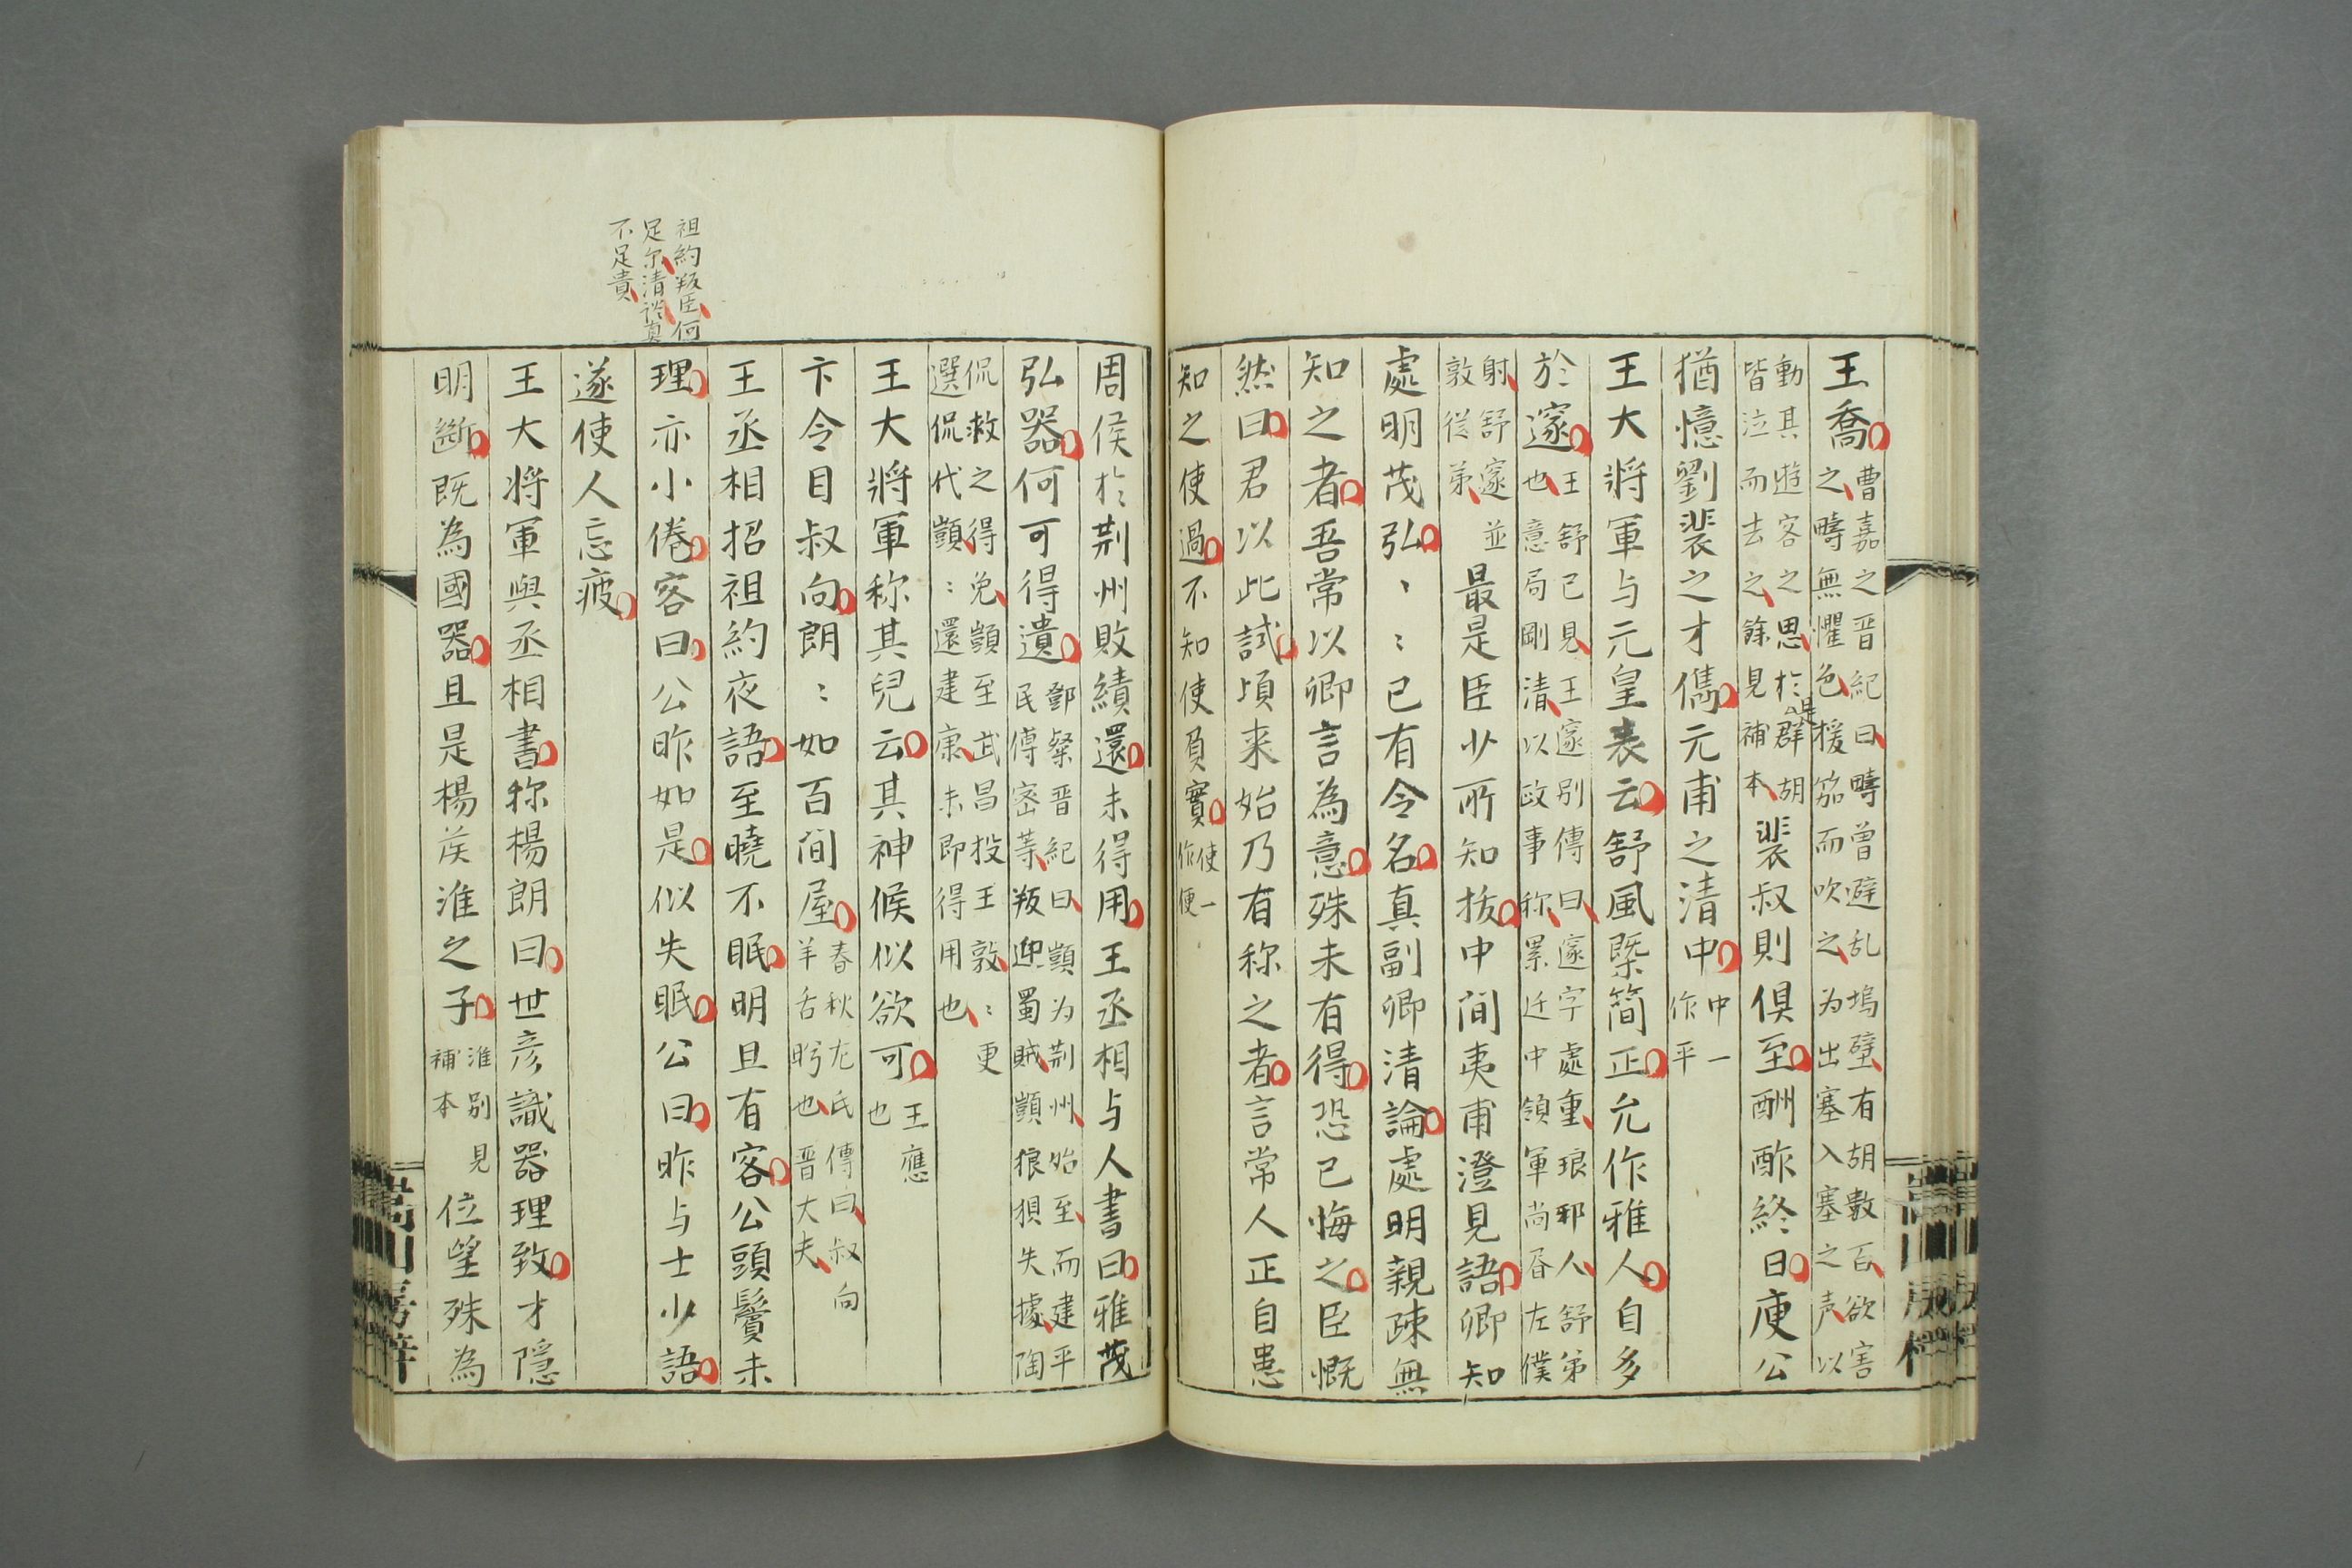 王喬曹嘉之晋紀曰疇曾避乱塢壁有胡數百欲害之疇無懼色援笳而吹之为出塞入塞之声以
動其遊客之思於是群胡皆泣而去之餘見補本裴叔則俱至酬酢終日庾公
猶憶劉裴之才儁元甫之清中中一作平
王大將軍与元皇表云舒風槩簡正允作雅人自多
於邃王舒已見王邃別傳曰邃字處重琅邪人舒弟也意局剛清以政事称累迁中領軍尚昏左僕
射舒邃並敦從弟最是臣少所知拔中間夷甫澄見語卿知
處明茂弘〻〻已有令名真副卿清論處明親疎無
知之者吾常以卿言為意殊未有得恐已悔之臣慨
然曰君以此試頃来始乃有称之者言常人正自患
知之使過不知使負實使一作便
周侯於荆州敗績還未得用王丞相与人書曰雅茂
弘器何可得遺鄧粲晋紀曰顗为荆州始至而建平民傅密等叛迎蜀賊顗狼狽失據陶
侃救之得免顗至武昌投王敦〻更選侃代顗〻還建康未即得用也
王大將軍称其兒云其神候似欲可王應也
卞令目叔向朗〻如百間屋春秋左氏傳曰叔向羊舌肸也晋大夫
王丞相招祖約夜語至曉不眠明旦有客公頭鬢未
理亦小倦客曰公昨如是似失眠公曰昨与士少語
遂使人忘疲
王大將軍與丞相書称楊朗曰世彦識器理致才隱
明斷既為國器且是楊侯淮之子淮別見補本位望殊為
祖約叛臣何
足尔清談真
不足貴